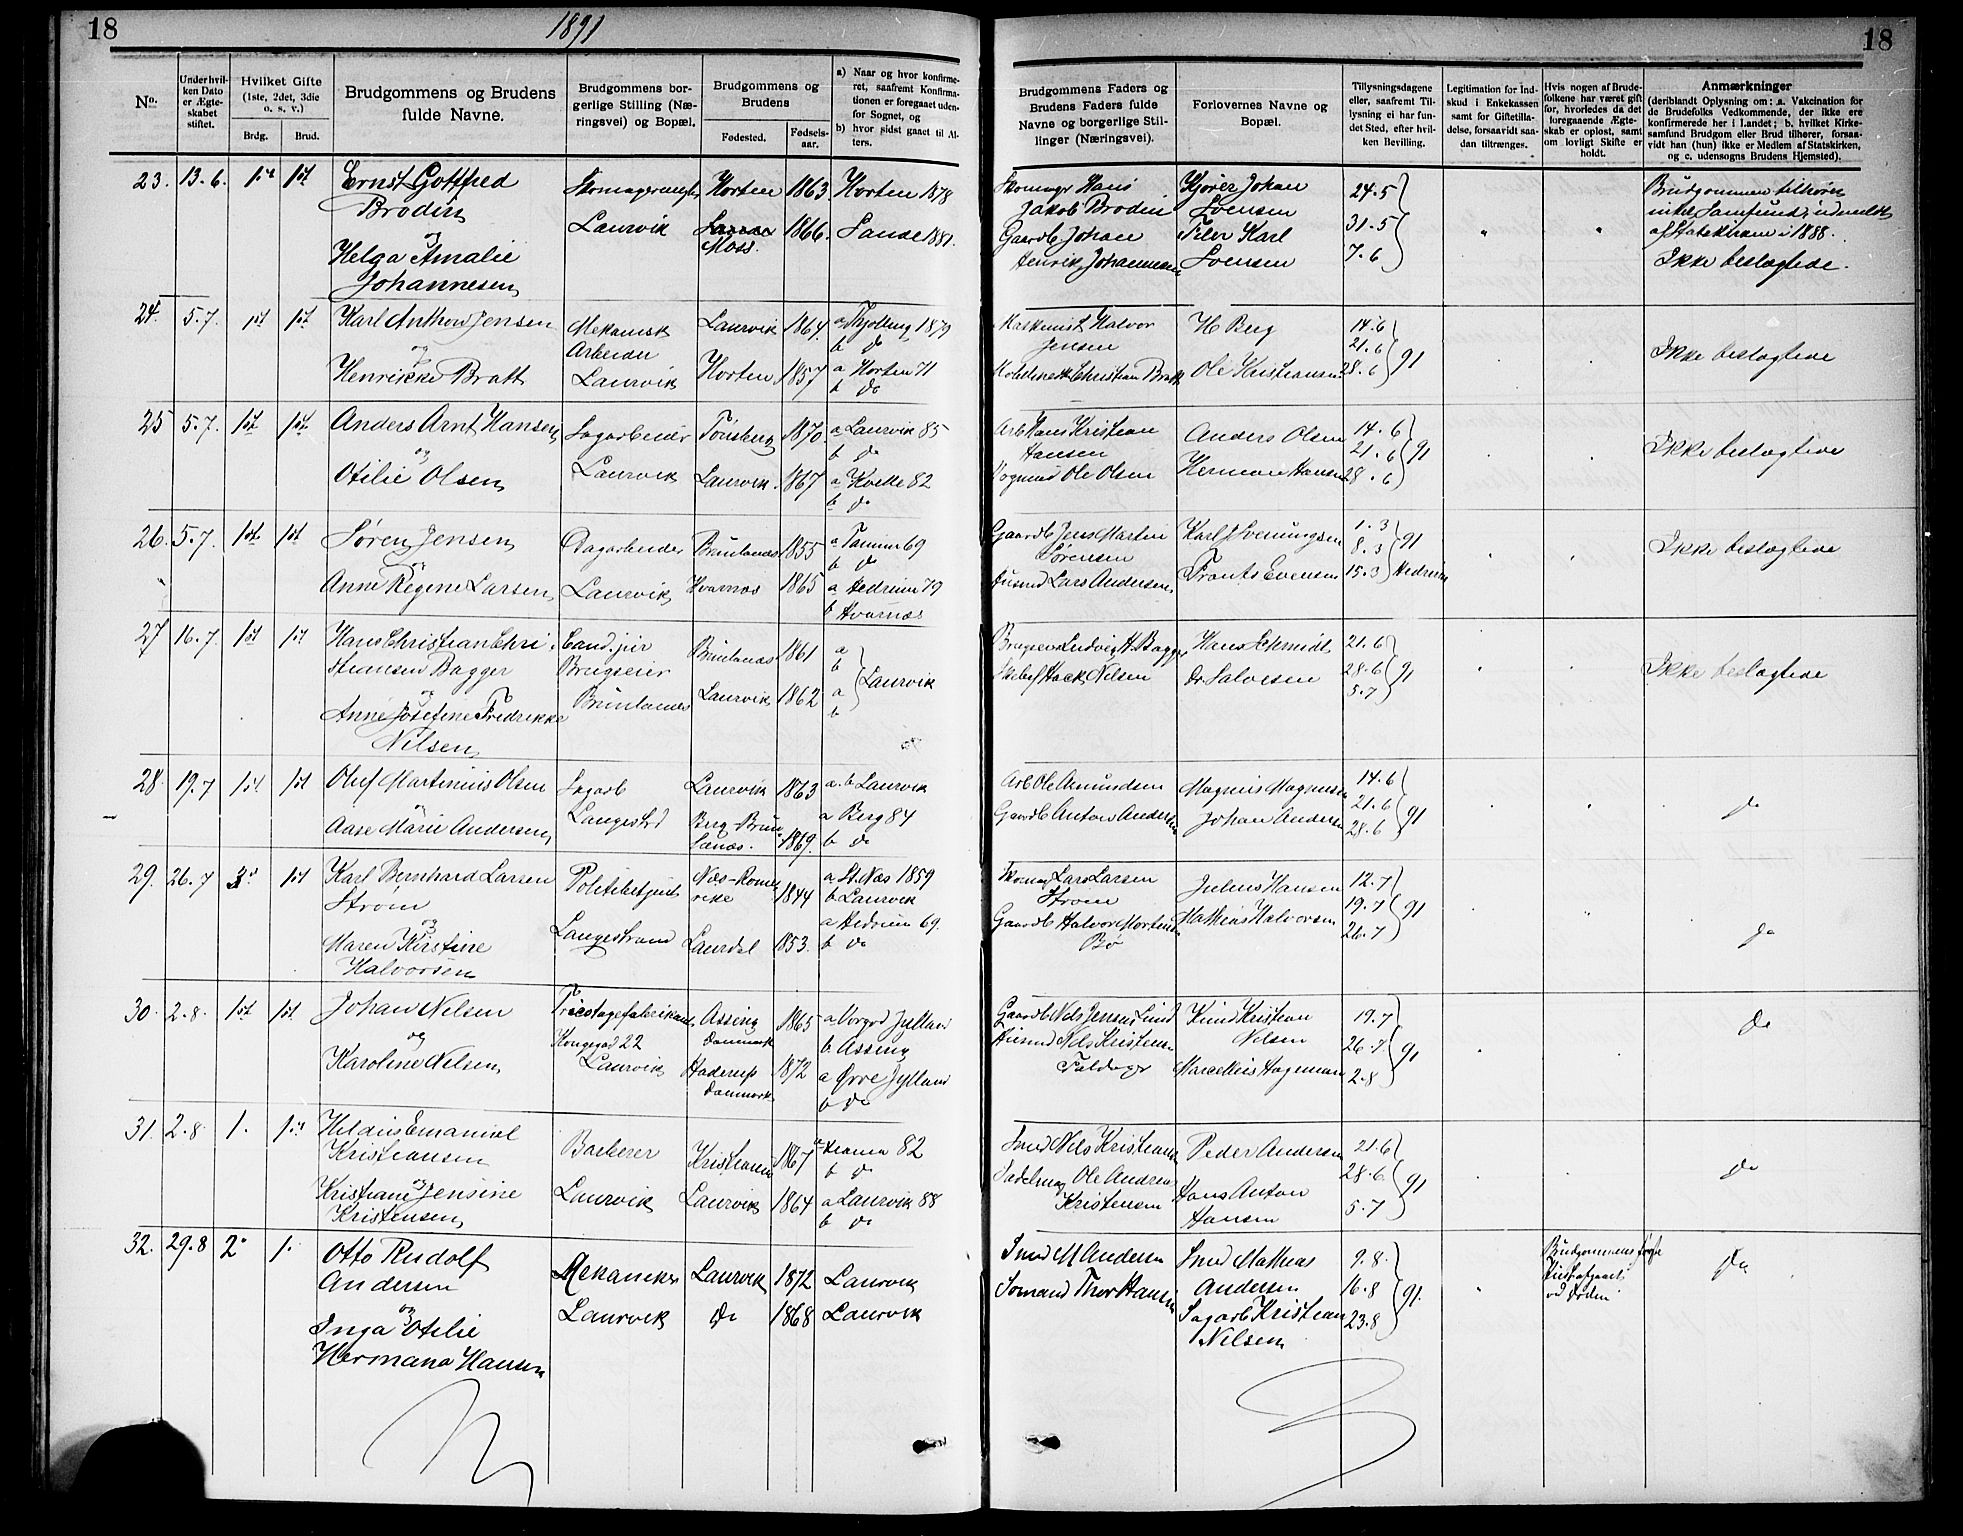 18
1891
18
No.
Under hvil-
ken Dato
er Ægte-
skabet
stiftet.
Hvilket Gifte
(1ste, 2det, 3die
o. s. v.)
Brdg.
Brud.
Brudgommens og Brudens
fulde Navne.
Brudgommens bor-
gerlige Stilling (Næ-
ringsvei) og Bopæl.
Brudgommens og
Brudens
Fødested.
Fødsels-
aar.
a) Naar og hvor konfirme-
ret, saafremt Konfirma-
tionen er foregaaet uden-
for Sognet, og
b) hvor sidst gaaet til Al-
ters.
Brudgommens Faders og
Brudens Faders fulde
Navne og borgerlige Stil-
linger (Næringsvei).
Forlovernes Navne og
Bopæl.
Tillysningsdagene
eller, saafremt Til-
lysning ei har fun-
det Sted, efter hvil-
ken Bevilling.
Legitimation for Ind-
skud i Enkekassen
samt for Giftetilla-
delse, forsaavidt saa-
dan tiltrænges.
Hvis nogen af Brude-
folkene har været gift
før, hvorledes da det
foregaaende Ægte-
skab er opløst, samt
om lovligt Skifte er
holdt.
Anmærkninger
(deriblandt Oplysning om: a. Vakcination for
de Brudefolks Vedkommende, der ikke ere
konfirmerede her i Landet; b. hvilket Kirke-
samfund Brudgom eller Brud tilhører, forsaa-
vidt han (hun) ikke er Medlem af Statskirken,
og c. udensogns Brudens Hjemsted).
23. 13.6. 1ste 1ste
Ernst Gottfred
Brodin
og
Helga Amalie
Johannesen
Laurvik
Horten 1863
Moss. 1866.
Horten 1878
Sande 1881.
Skomager Hans
Jakob Brodin
Gaardb Johan
Henrik Johannesen
Kjører Johan
Svensen
Karl
Svensen
24.5
31.5
7.6
Brudgommen tilhører
intet Samfund, udmeldt
af Statskirken i 1888.
Ikke beslægtede.
24. 5.7. 1st 1st
Karl Anthon Jensen
og
Henrikke Bratt
Mekanisk
Arbeider
Laurvik
Laurvik 1864.
Horten 1857
a Tjølling 1879
b do
a Horten 71
b do
Maskinist Halvor
Jensen
Christian Bratt
H Berg
Ole Kristiansen
14.6
21.6
28.6
91
Ikke beslægtede
25 5.7. 1st 1st
Anders Arnt Hansen
og
Otilie Olsen
Sagarbeider
Laurvik
Tønsberg 1870.
Laurvik. 1867
a Laurvik 85
b do
a Kvelle 82
b do
Arb Hans Kristian
Hansen
Ole Olsen
Anders Olsen
Herman Hansen
14.6
21.6
28.6
91
Ikke beslægtede
26. 5.7. 1st 1st
Søren Jensen
og
Anne Regine Larsen
Dagarbeider
Laurvik
Brunlanæs 1855
Hvarnæs 1865
a Tanum 69
b do
a Hedrum 79
b Hvarnæs
Gaardb Jens Martin
Sørensen
Husmd Lars Andersen
Karl J Sveningsen
Frants Evensen
1.3
8.3
15.3
91
Hedrum
Ikke beslægtede
27 16.7. 1st 1st
Hans Christian Chri-
stiansen Bagger
og
Anne Josefine Fredrikke
Nilsen
Cand. jur
Brugseier
Brunlanæs
Brunlanæs 1861
Laurvik 1862
a
b
a
b
Laurvik
Brugseier Ludvig H. Bagger
Hack Nilsen
Hans Schmidt
Dr. Salvesen
21.6
28.6
5.7
91
Ikke beslægtede
28. 19.7 1st 1st
Oluf Martinius Olsen
og
Aase Marie Andersen
Sagarb
Langestrd
Laurvik 1863
Berg Brun-
lanæs. 1869.
a. b Laurvik
a Berg 84
b do
Arb Ole Amundsen
Gaardb Anton Andersen
Magnus Magnusen
Johan Andersen
14.6
21.6
28.6
91
do
29. 26.7 3die 1st
Karl Bernhard Larsen
Strøm
og
Maren Kirstine
Halvorsen
Politibetjent
Langestrand
Næs-Rome-
rike 1844
Laurdal 1853.
a St. Næs 1859
b Laurvik
a Hedrum 69.
b do
Skomag Lars Larsen
Strøm
Gaardb Halvor Mortens
Bø
Julius Hansen
Mathias Halvorsen
12.7
19.7
26.7
91
do
30. 2.8. 1st 1st
Johan Nilsen
og
Karoline Nilsen
Kongegad 22
Laurvik
Assing
Danmark 1865
Haderup
Danmark 1872
a Vorgod Jylland
b Assing
a Ørre Jylland
b do
Gaardb Nils Jensen Lund
Husmd Nils Kristensen
Knud Kristian
Nilsen
19.7
26.7.
2.8
91
do
31. 2.8 1. 1st
Emanuel
Kristiansen
og
Kristiane Jensine
Kristensen
Barberer
Laurvik
1867
Laurvik 1864
82
b do
a Laurvik 88
b do
Smed Nils Kristiansen
Sadelmag Ole Andreas
Kristensen
Peder Andersen
Hans Anton
Hansen
21.6
28.6
5.7
91
do
32. 29.8 2. 1.
Otto Rudolf
Andersen
og
Inga Otilie
Hermana Hansen
Mekaniker
Laurvik
Laurvik 1872
do 1868
Laurvik
Laurvik
Smed M Andersen
Sømand Thor Hansen
Smed Mathias
Andersen
Sagarb Kristian
Nilsen
9.8.
16.8
23.8
91.
Brudgommens første
ved Døden
do